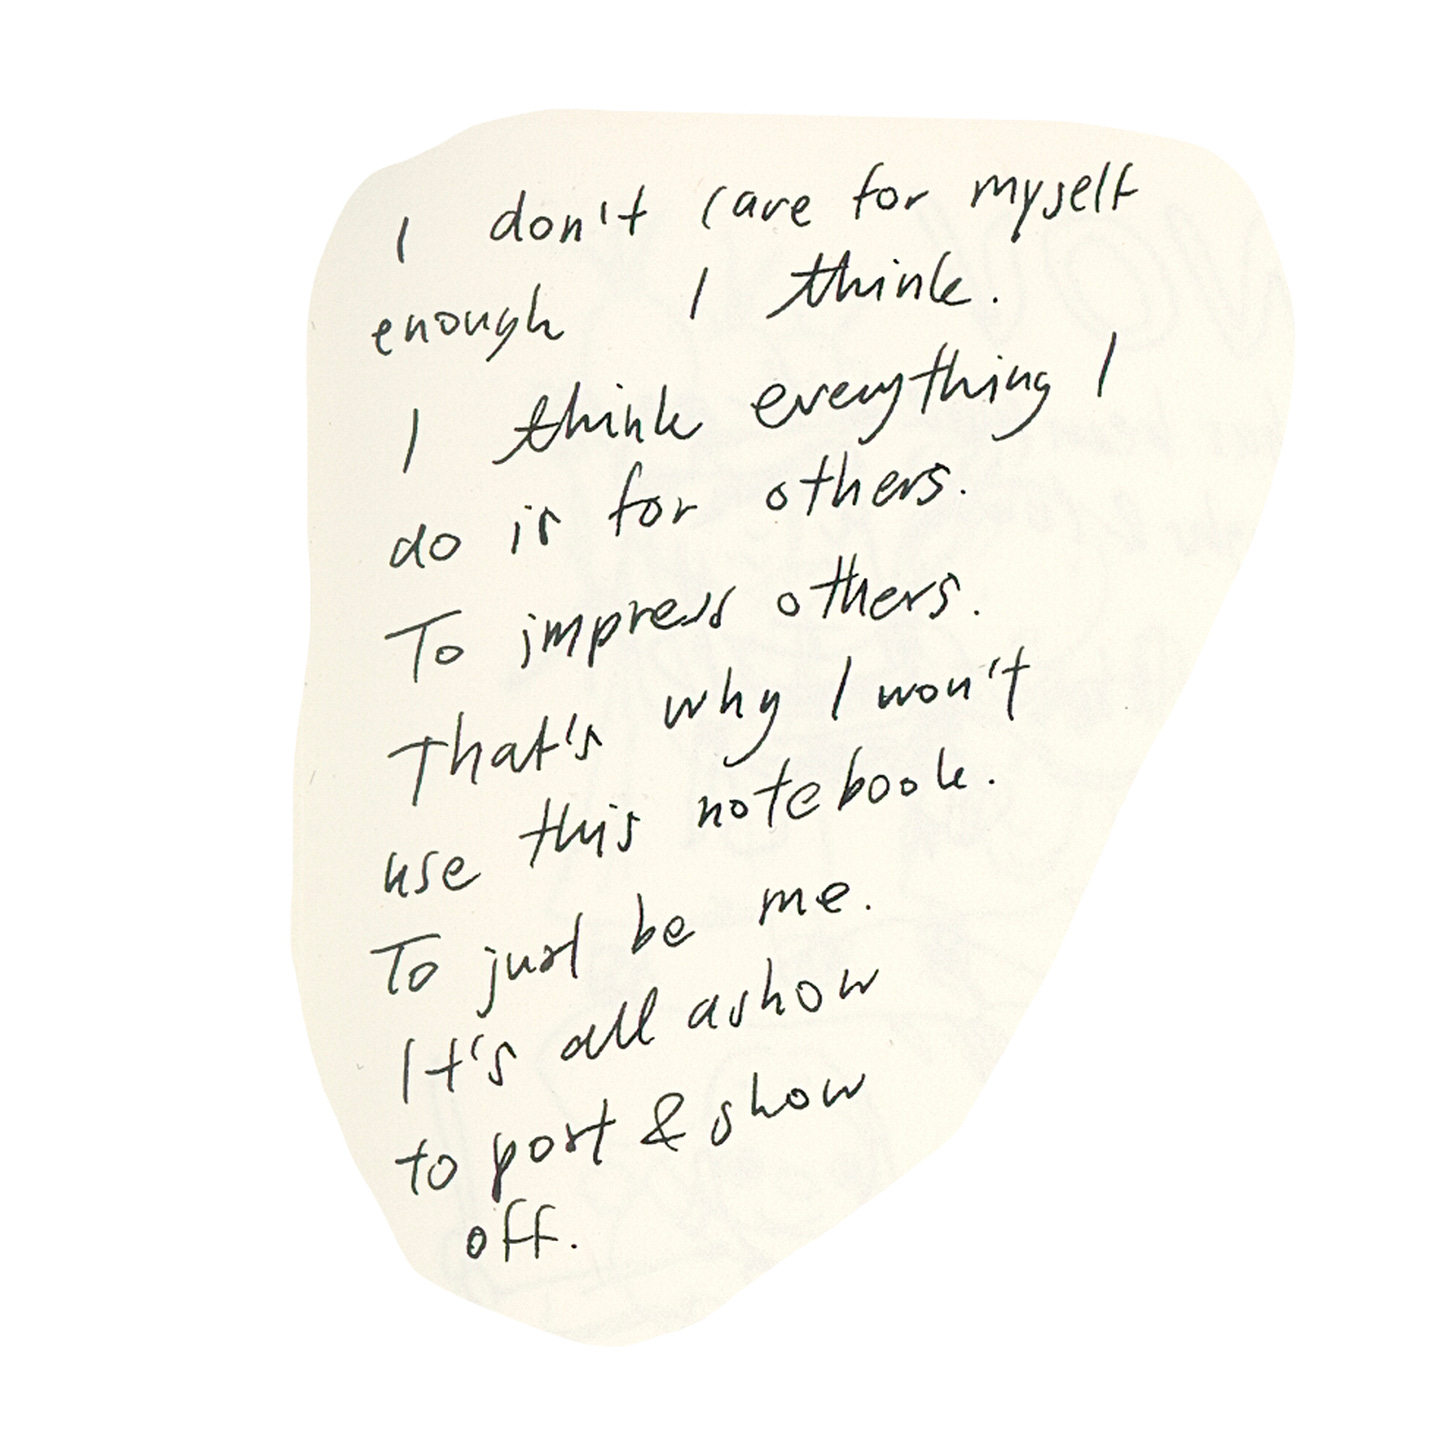 I don't care for myself
enough I think.
I think everything I
do is for others.
To impress others.
That's why I won't
use this notebook.
To just be me.
It's all a show
to post & show
off.